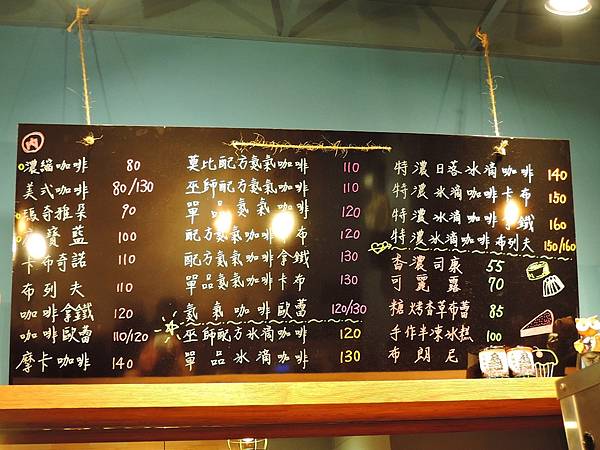 濃縮咖啡 80
美式咖啡 80/130
瑪奇雅朵 90
寶藍 100
卡布奇諾 110
布列夫 110
咖啡拿鐵 120
咖啡歐蕾 110/120
摩卡咖啡 140
莫比配方氨氣咖啡 110
巫師配方氨氣咖啡 110
單品氨氣咖啡 120
配方氨氣咖啡卡布 120
配方氨氣咖啡拿鐵 130
單品氨氣咖啡卡布 130
氨氣咖啡歐蕾 120/130
巫師配方冰滴咖啡 120
單品冰滴咖啡 130
特濃日落冰滴咖啡 140
特濃冰滴咖啡卡布 150
特濃冰滴咖啡拿鐵 160
特濃冰滴咖啡布列夫 150/160
香濃司康 55
可麗露 70
糖烤香草布蕾 85
手作半凍冰糕 100
布朗尼